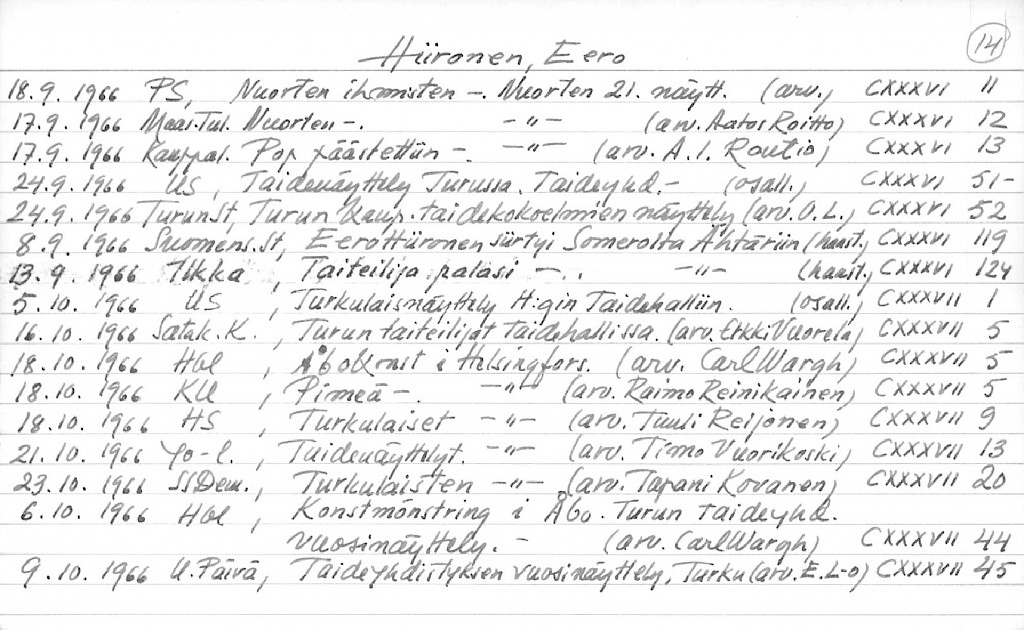 14
Hiironen, Eero
18.9. 1966 PS, Nuorten ihmisten -. Nuorten 21. näytt. (arv.) CXXXVI 11
17.9. 1966 Maas.Tul. Nuorten -. -"- (arv. Aatos Roitto) CXXXVI 12
17.9. 1966 Kauppal. Pop päästettiin -. -"- (arv. A.I. Routio) CXXXVI 13
24.9. 1966 US, Taidenäyttely Turussa. Taideyhd.- (osall.) CXXXVI 51-
24.9. 1966 Turun.St, Turun kaup. taidekokoelmien näyttely (arv. O.L.) CXXXVI 52
8.9. 1966 Suomens.St, Eero Hiironen siirtyi Somerolta Ähtäriin (haast.) CXXXVI 119
13.9. 1966 Ilkka, Taiteilija palasi -.. -"- (haast.) CXXXVI 124
5.10. 1966 US, Turkulaisnäyttely H:gin Taidehalliin. (osall.) CXXXVII 1
16.10. 1966 Satak.K., Turun taiteilijat taidehallissa. (arv. Erkki Vuorela) CXXXVII 5
18.10. 1966 Hbl, Åbokonst i Helsingfors. (arv. Carl Wargh) CXXXVII 5
18.10. 1966 KU, Pimeä -. -"- (arv. Raimo Reinikainen) CXXXVII 5
18.10. 1966 HS, Turkulaiset -"- (arv. Tuuli Reijonen) CXXXVII 9
21.10. 1966 Yo-l., Taidenäyttelyt. -"- (arv. Timo Vuorikoski) CXXXVII 13
23.10. 1966 SSDem., Turkulaisten -"- (arv. Tapani Kovanen) CXXXVII 20
6.10. 1966 Hbl, Konstmönstring i Åbo. Turun taideyhd.
vuosinäyttely. - (arv. Carl Wargh) CXXXVII 44
9.10. 1966 U.Päivä, Taideyhdistyksen vuosinäyttely, Turku (arv. E.L-o) CXXXVII 45